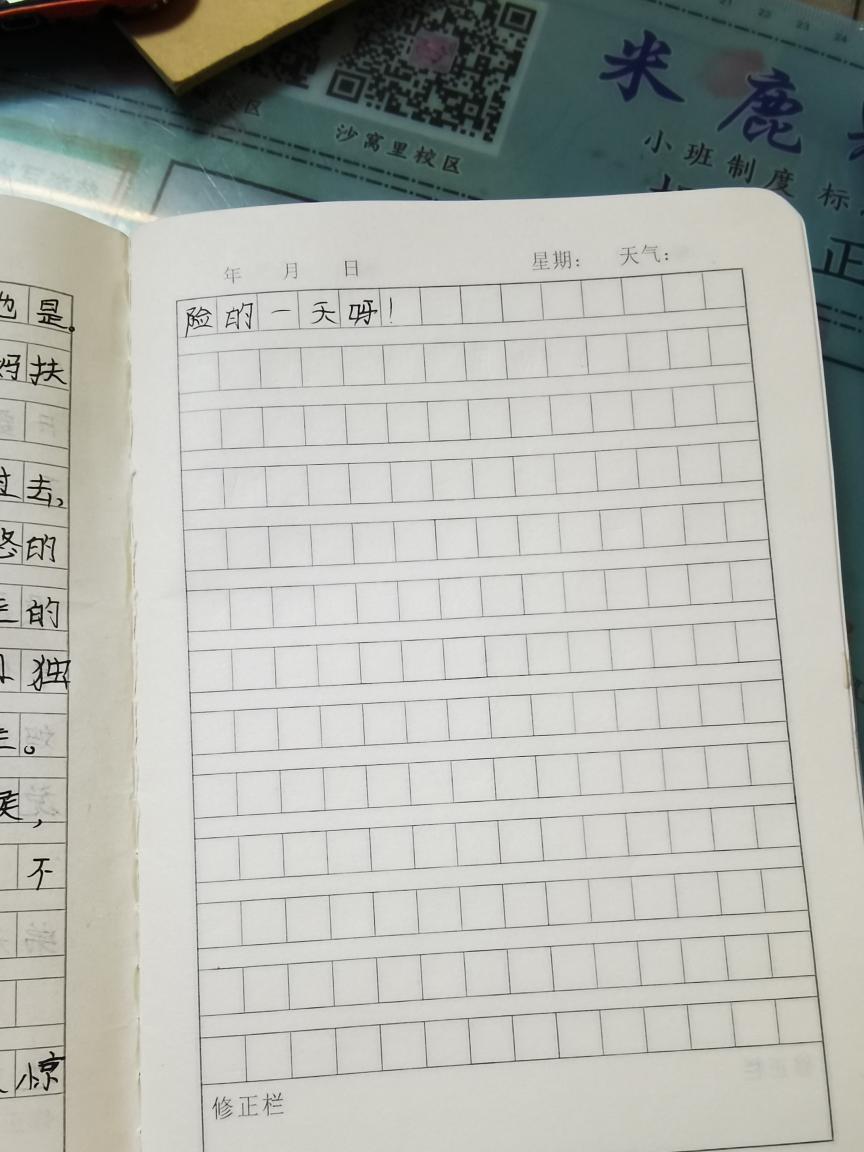 校区
沙窝里校区
米鹿
小班制度 标
正
年 月 日 星期： 天气：
险的一天呀！
也是。
妈扶
过去，
悠的
的
独
。
，
不
惊
修正栏